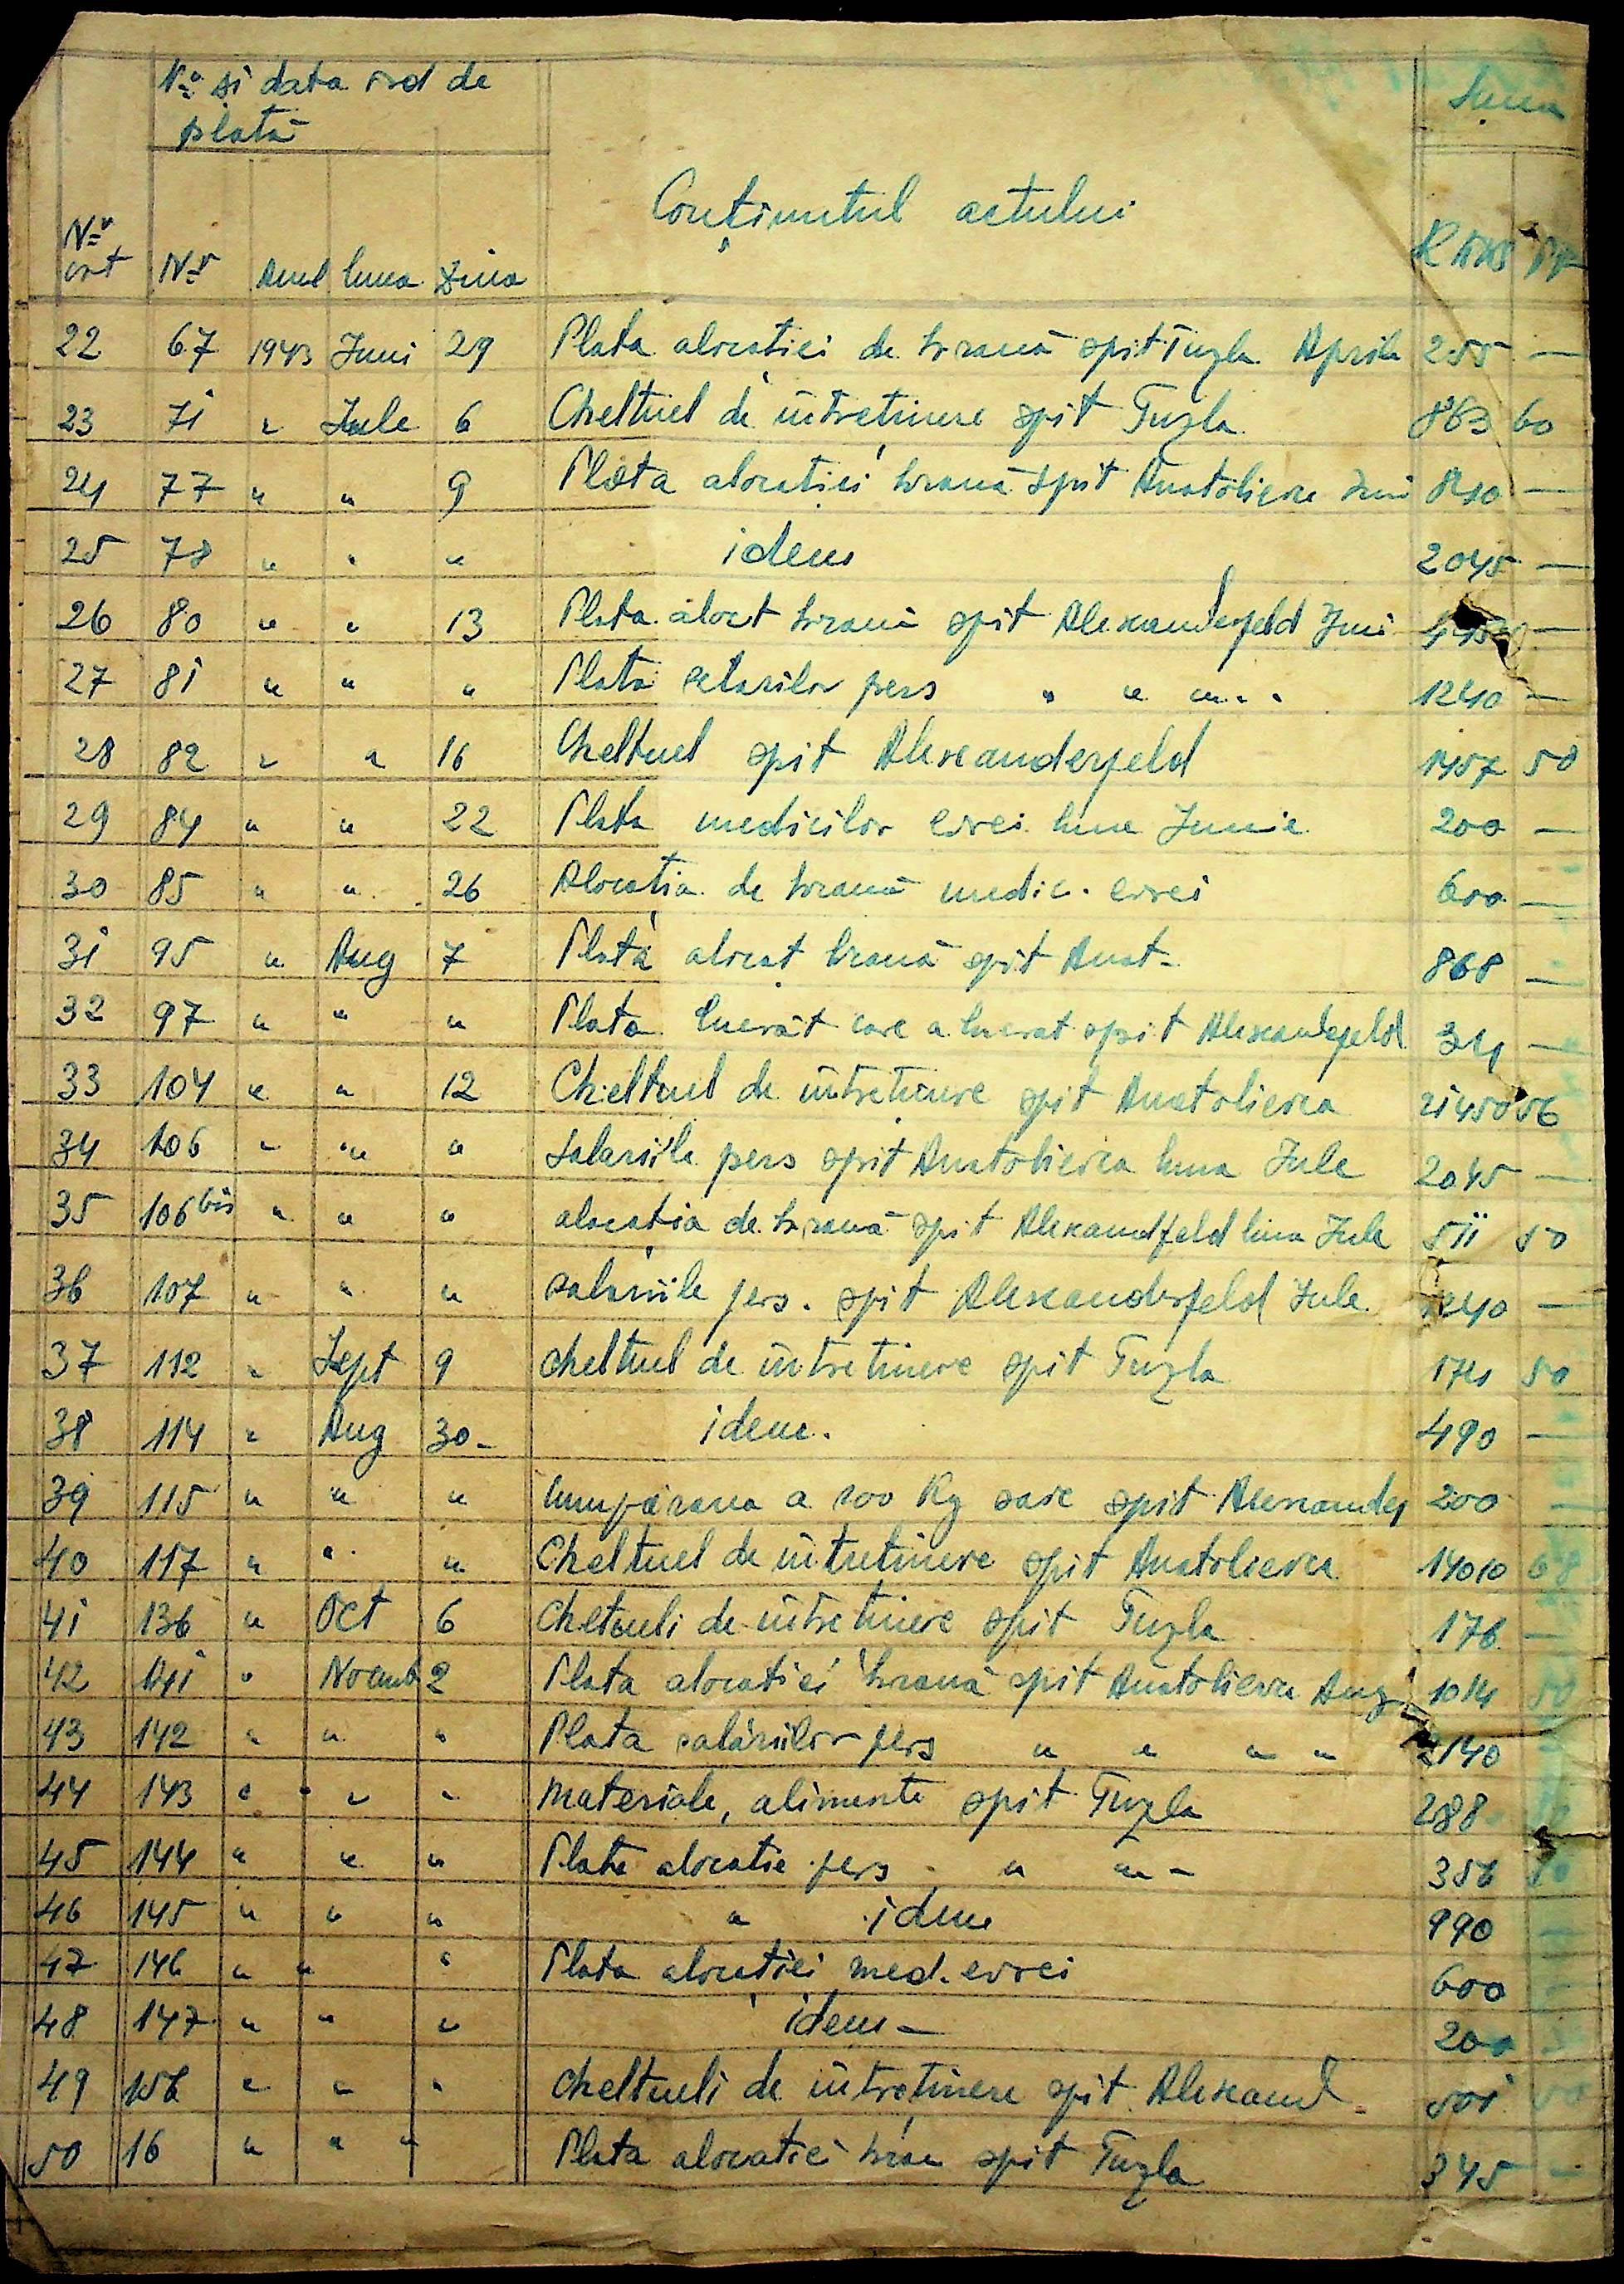 Nº și data ord de
plată
Suma
Conținutul actului
Nº
crt Nº Anul luna ziua RKKS Pf
22 67 1943 Juni 29 Plata alocatiei de hrană spit Tuzla Aprile 255 —
23 71 " Jule 6 Cheltuel de întretinere spit Tuzla 863 60
24 77 " " 9 Plata alocatiei hrană spit Anatolievca Juni 840 —
25 78 " " " idem 2045 —
26 80 " " 13 Plata alocat hrană spit Alexanderfeld Juni —
27 81 " " " Plata salarilor pers " " " " 1240 —
28 82 " " 16 Cheltuel spit Alexanderfeld 1457 50
29 84 " " 22 Plata medicilor evrei luna Junie 200 —
30 85 " " 26 Alocația de hrană medic. evrei 600 —
31 95 " Aug 7 Plata alocat hrană spit Anat- 868 —
32 97 " " " Plata lucrăt care a lucrat spit Alexandefeld 34 —
33 104 " " 12 Cheltuel de intretinere spit Anatolievca 21450 56
34 106 " " " Salariile pers spit Anatolievca luna Jule 2045 —
35 106 bis " " " alocatia de hrană spit Alexandfeld luna Jule 511 50
36 107 " " " salariile pers. spit Alexanderfeld Jule 1240 —
37 112 " Sept 9 cheltuel de intretinere spit Tuzla 174 50
38 114 " Aug 30- idem. 490 —
39 115 " " " Cumpărarea a 100 Kg sare spit Alexander 200 —
40 117 " " " Cheltuel de intretinere spit Anatolievca 14010 68
41 136 " Oct 6 cheltueli de intretinere spit Tuzla 176 —
42 141 " Noemb 2 Plata alocatiei hrană spit Anatolievca Aug 1014 50
43 142 " " " Plata salariilor pers " " " " 2140
44 143 " " " materiale, alimente spit Tuzla 288
45 144 " " " Plata alocatie pers " " - 356 50
46 145 " " " " idem 990 —
47 146 " " " Plata alocatiei med. evrei 600 —
48 147 " " " idem - 200
49 156 " " " cheltueli de intreținere spit Alexand 501
50 16 " " " Plata alocatiei hran spit Tuzla 345 —